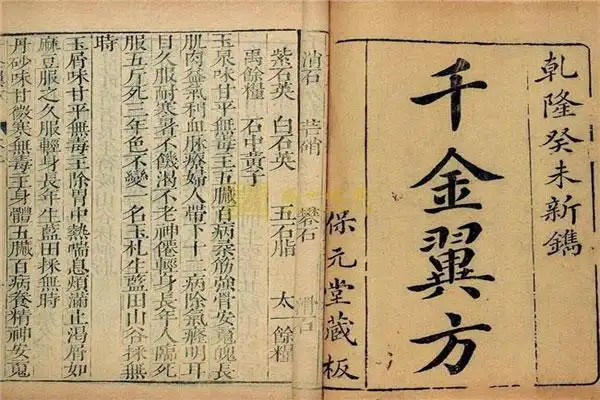 乾隆癸未新鐫
千金翼方
保元堂藏板
消石 芒硝 礬石 滑石
紫石英 白石英 五石脂 太一餘糧
禹餘糧 石中黃子
玉泉味甘平無毒主五臟百病柔筋強骨安䰟魄長
肌肉益氣利血脉療婦人帶下十二病除氣癃明耳
目久服耐寒暑不饑渴不老神僊輕身長年人臨死
服五斤死三年色不變 一名玉札生藍田山谷採無
時
玉屑味甘平無毒主除胃中熱喘息煩滿止渴屑如
麻豆服之久服輕身長年生藍田採無時
丹砂味甘微寒無毒主身體五臟百病養精神安䰟